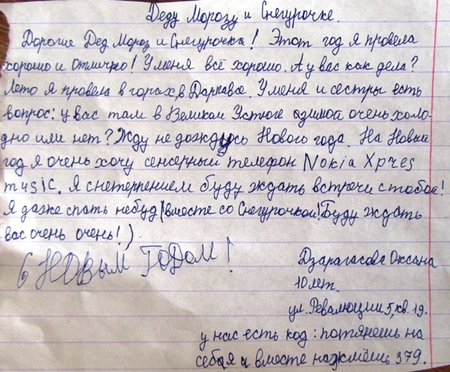 Деду Морозу и Снегурочке.
Дорогие Дед Мороз и Снегурочка! Этот год я провела
хорошо и отлично! У меня всё хорошо. А у вас как дела?
Лето я провела в горах в Даргавс. У меня и сестры есть
вопрос: у вас там в Великом Устюге зимой очень холо-
дно или нет? Жду не дождусь Нового года. На Новый
год я очень хочу сенсерный телефон Nokia Xpres
music. Я с нетерпением буду ждать встречи с тобой!
Я даже спать небуду (вместе со Снегурочкой! Буду ждать
вас очень очень!)
С НОВЫМ ГОДОМ!
Дзарагасова Оксана
10 лет.
ул. Революции 5, кв. 19.
у нас есть код: потянешь на
себя и вместе нажмёшь 379.